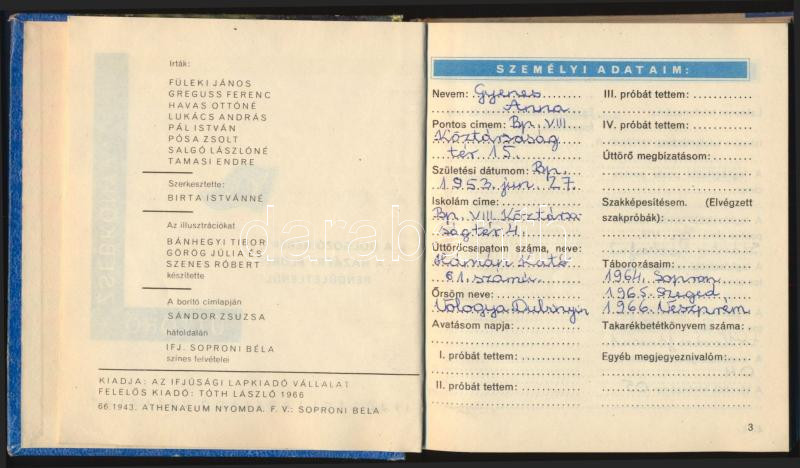 Irták:
FÜLEKI JÁNOS
GREGUSS FERENC
HAVAS OTTÓNÉ
LUKÁCS ANDRÁS
PÁL ISTVÁN
PÓSA ZSOLT
SALGÓ LÁSZLÓNÉ
TAMASI ENDRE
Szerkesztette:
BIRTA ISTVÁNNÉ
Az illusztrációkat
BÁNHEGYI TIBOR
GÖRÖG JÚLIA ÉS
SZENES RÓBERT
készítette
A borító címlapján
SÁNDOR ZSUZSA
hátoldalán
IFJ. SOPRONI BÉLA
színes felvételei
KIADJA: AZ IFJÚSÁGI LAPKIADÓ VÁLLALAT
FELELŐS KIADÓ: TÓTH LÁSZLÓ 1966
66.1943. ATHENAEUM NYOMDA. F. V.: SOPRONI BÉLA
SZEMÉLYI ADATAIM:
Nevem: Gyenes
Anna
Pontos címem: Bp. VIII.
Köztársaság
tér 15.
Születési dátumom: Bp.
1953. jun. 27.
Iskolám címe:
Bp. VIII. Köztársa
ság tér 4.
Úttörőcsapatom száma, neve:
Hámán Kató
Őrsöm neve:
Vologya Dubinyin
Avatásom napja:
I. próbát tettem:
II. próbát tettem:
III. próbát tettem:
IV. próbát tettem:
Úttörő megbizatásom:
Szakképesítésem. (Elvégzett
szakpróbák):
Táborozásaim:
1964. Sopron
1965. Szeged
1966. Veszprém
Takarékbetétkönyvem száma:
Egyéb megjegyeznivalóm:
3
darabanth